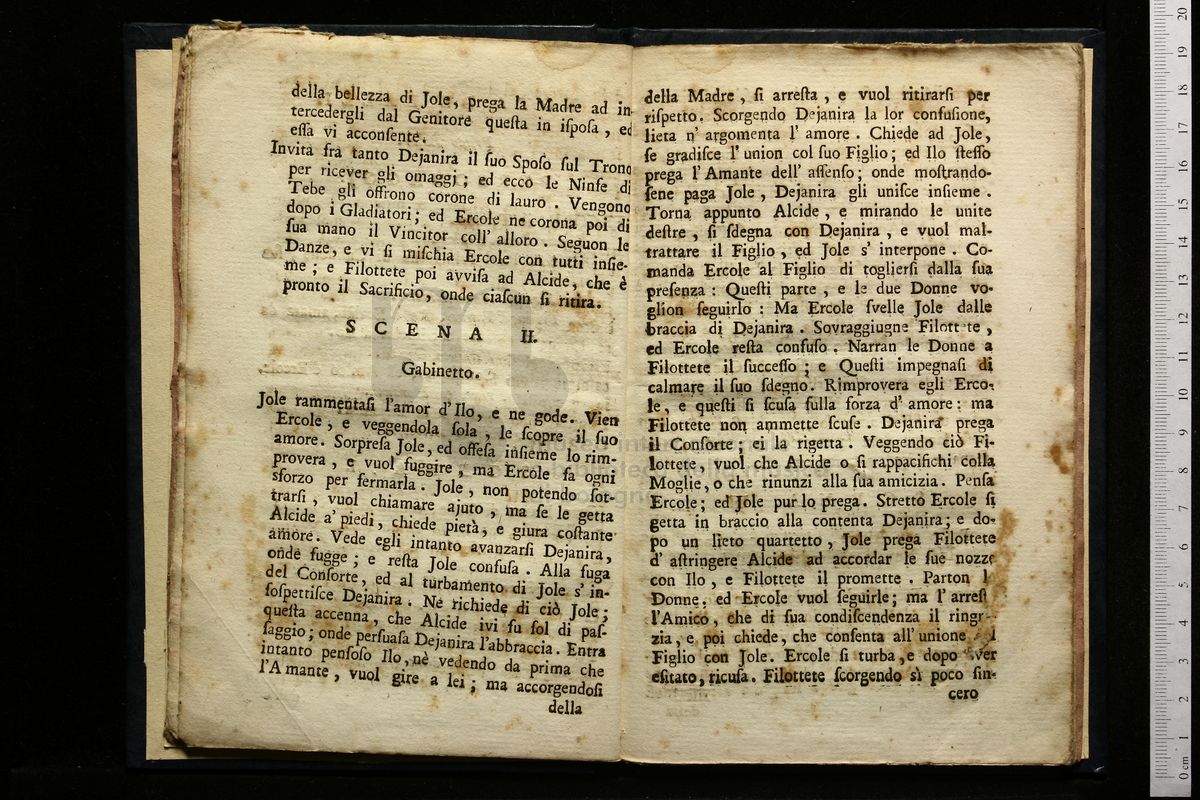 della bellezza di Jole, prega la Madre ad in
tercedergli dal Genitore queſta in iſpoſa, ed
eſſa vi acconſente.
Invita fra tanto Dejanira il ſuo Spoſo ſul Trono
per ricever gli omaggj; ed ecco le Ninfe di
Tebe gli offrono corone di lauro. Vengono
dopo i Gladiatori; ed Ercole ne corona poi di
ſua mano il Vincitor coll' alloro. Seguon le
Danze, e vi ſi miſchia Ercole con tutti inſie-
me; e Filottete poi avviſa ad Alcide, che è
pronto il Sacrificio, onde ciaſcun ſi ritira.
SCENA II.
Gabinetto.
Jole rammentaſi l'amor d'Ilo, e ne gode. Vien
Ercole, e veggendola ſola, le ſcopre il ſuo
amore. Sorpreſa Jole, ed offeſa inſieme lo rim-
provera, e vuol fuggire, ma Ercole fa ogni
sforzo per fermarla. Jole, non potendo ſot-
trarſi, vuol chiamare ajuto, ma ſe le getta
Alcide a' piedi, chiede pietà, e giura coſtante
amore. Vede egli intanto avanzarſi Dejanira,
onde fugge; e reſta Jole confuſa. Alla fuga
del Conſorte, ed al turbamento di Jole s' in-
ſoſpettiſce Dejanira. Ne richiede di ciò Jole;
queſta accenna, che Alcide ivi fu ſol di paſ-
ſaggio; onde perſuaſa Dejanira l'abbraccia. Entra
intanto penſoſo Ilo, nè vedendo da prima che
l'Amante, vuol gire a lei; ma accorgendoſi
della
della Madre, ſi arreſta, e vuol ritirarſi per
riſpetto. Scorgendo Dejanira la lor confuſione,
lieta n' argomenta l' amore. Chiede ad Jole,
ſe gradiſce l' union col ſuo Figlio; ed Ilo ſteſſo
prega l' Amante dell' aſſenſo; onde moſtrando-
ſene paga Jole, Dejanira gli uniſce inſieme.
Torna appunto Alcide, e mirando le unite
deſtre, ſi ſdegna con Dejanira, e vuol mal-
trattare il Figlio, ed Jole s' interpone. Co-
manda Ercole al Figlio di toglierſi dalla ſua
preſenza: Queſti parte, e le due Donne vo-
glion ſeguirlo: Ma Ercole ſvelle Jole dalle
braccia di Dejanira. Sovraggiugne Filottete,
ed Ercole reſta confuſo. Narran le Donne a
Filottete il ſucceſſo; e Queſti impegnaſi di
calmare il ſuo ſdegno. Rimprovera egli Erco-
le, e queſti ſi ſcuſa ſulla forza d' amore: ma
Filottete non ammette ſcuſe. Dejanira prega
il Conſorte; ei la rigetta. Veggendo ciò Fi-
lottete, vuol che Alcide o ſi rappacifichi colla
Moglie, o che rinunzi alla ſua amicizia. Penſa
Ercole; ed Jole pur lo prega. Stretto Ercole ſi
getta in braccio alla contenta Dejanira; e do-
po un lieto quartetto, Jole prega Filottete
d' aſtringere Alcide ad accordar le ſue nozze
con Ilo, e Filottete il promette. Parton
Donne, ed Ercole vuol ſeguirle; ma l' arreſt
l'Amico, che di ſua condiſcendenza il ringr-
zia, e poi chiede, che conſenta all' unione
Figlio con Jole. Ercole ſi turba, e dopo
eſitato, ricuſa. Filottete ſcorgendo sì poco ſin-
cero
20
19
18
17
16
15
14
13
12
11
10
9
8
7
6
5
4
3
2
1
0 cm